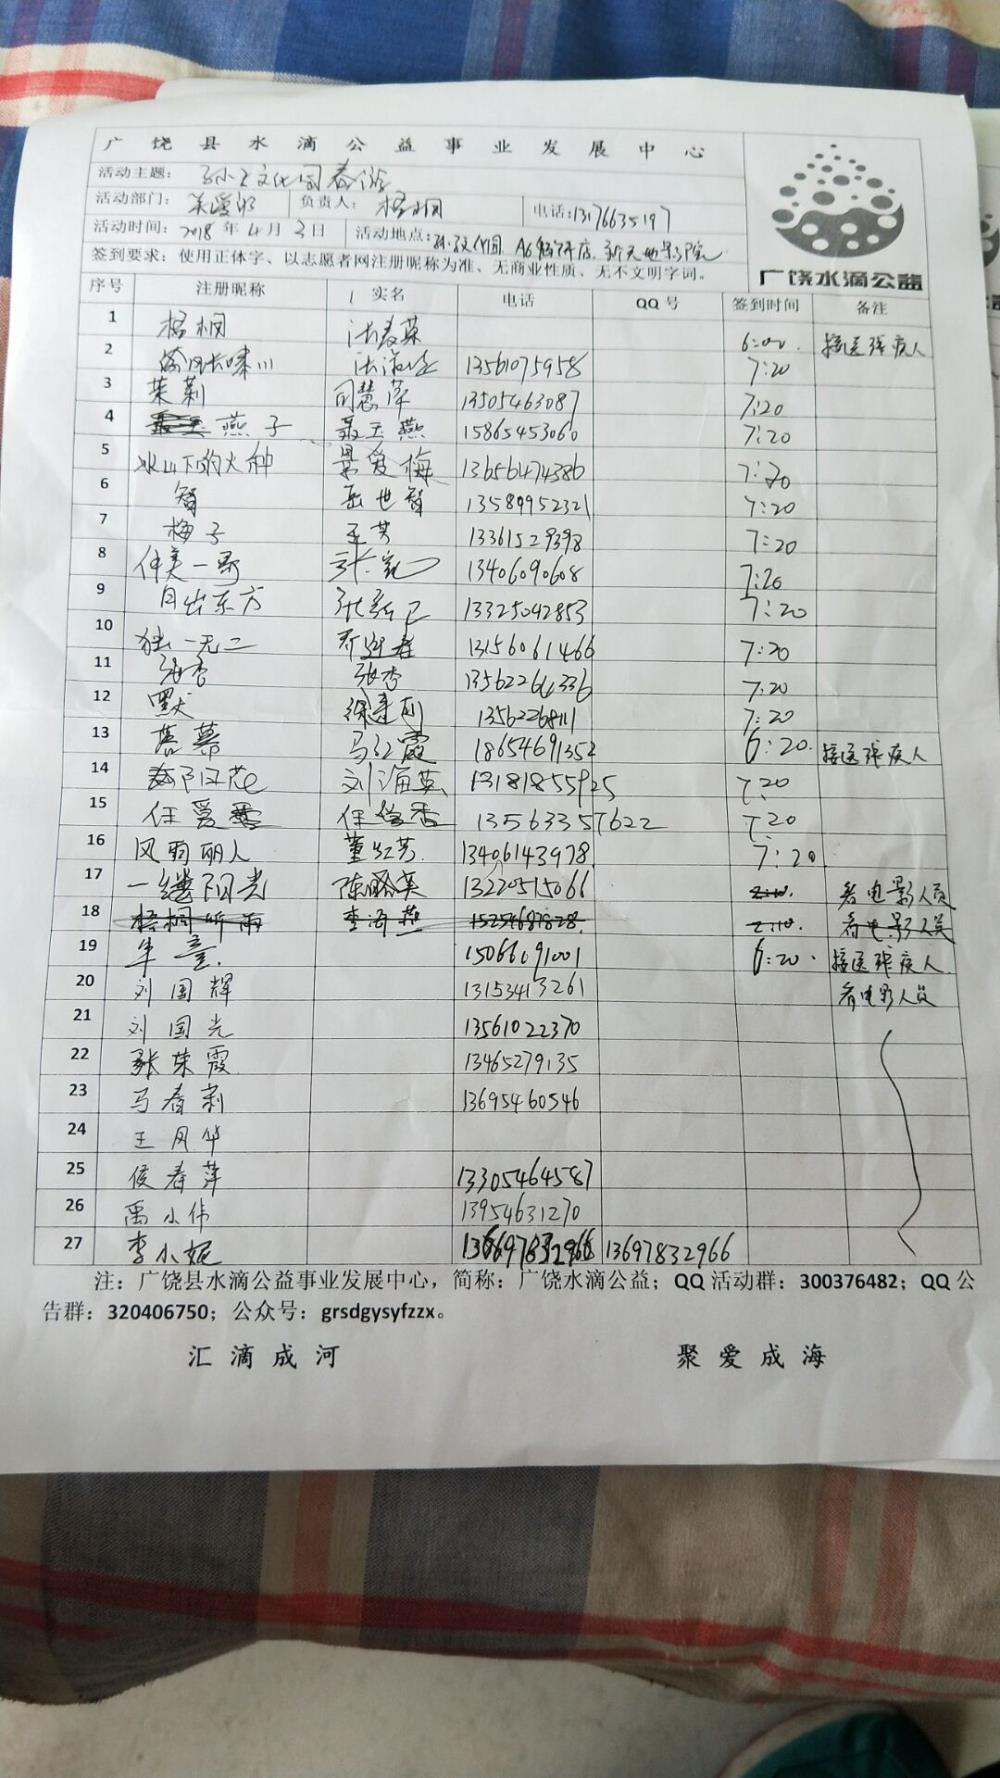 广饶县水滴公益事业发展中心
活动主题: 孙子文化园春游
活动部门: 负责人: 梧桐 电话:13176635197
活动时间: 2018年4月3日 活动地点: 新天地影院
签到要求: 使用正体字、以志愿者网注册昵称为准、无商业性质、无不文明字词。
广饶水滴公益
序号 注册昵称 实名 电话 QQ号 签到时间 备注
1 梧桐 6:00 接送残疾人
2 13561075958 7:20
3 茉莉 闫慧萍 13505463087 7:20
4 燕子 聂玉燕 15865453060 7:20
5 冰山下的火种 景爱梅 13656474386 7:20
6 智 岳世智 13589952321 7:20
7 梅子 王芳 13361529398 7:20
8 仲美一哥 13406090608 7:20
9 日出东方 13325042853 7:20
10 独一无二 13156061466 7:20
11 张杏 张杏 13562264336 7:20
12 默 13562268111 7:20
13 落幕 马红霞 18654691352 6:20 接送残疾人
14 刘海英 13181855925 7:20
15 13563357622 7:20
16 风雨丽人 董红芳 13406143978 7:20
17 一缕阳光 陈丽英 13220515066 2:10 看电影人员
18 梧桐听雨 李海燕 15254687828 2:10 看电影人员
19 牟童 15066091001 6:20 接送残疾人
20 刘国辉 13153413261 看电影人员
21 刘国光 13561022370
22 张荣霞 13465279135
23 马春莉 13695460546
24 王风华
25 侯春萍 13305464587
26 禹小伟 13954631270
27 李小妮 13697832966 13697832966
注: 广饶县水滴公益事业发展中心, 简称: 广饶水滴公益; QQ活动群: 300376482; QQ公
告群: 320406750; 公众号: grsdgysyfzzx。
汇滴成河 聚爱成海